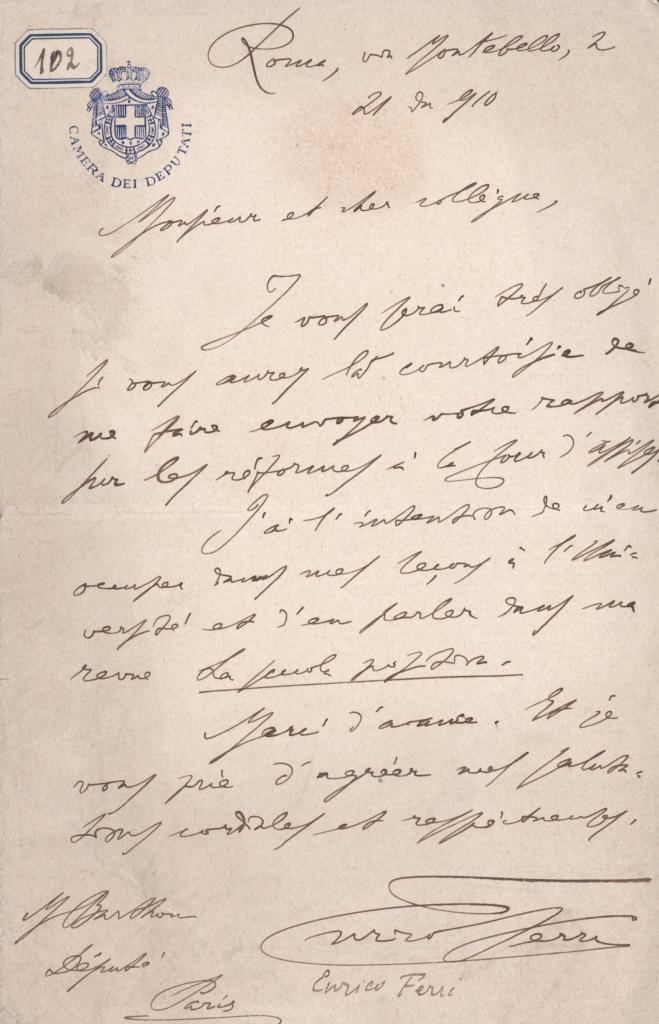 102
CAMERA DEI DEPUTATI
Roma, via Montebello, 2
21 du 910
Monsieur et cher collègue,
Je vous serai très obligé
si vous aurez la courtoisie de
me faire envoyer votre rapport
sur les réformes à la Cour d'assises.
J'ai l'intention de m'en
occuper dans mes leçons à l'Uni-
versité et d'en parler dans ma
revue La scuola positiva.
Merci d'avance. Et je
vous prie d'agréer mes saluta-
tions cordiales et respectueuses.
Enrico Ferri
M Barthou
Député
Paris
Enrico Ferri